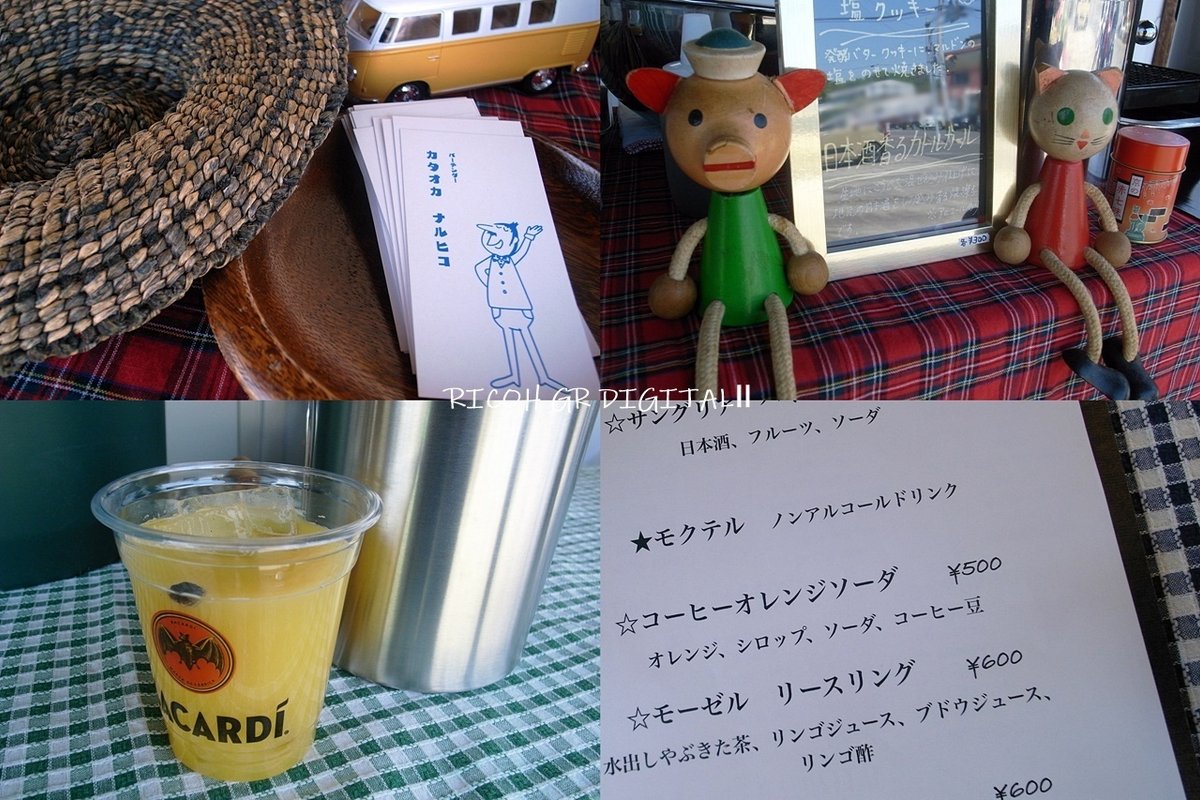 バーテンダー
カタオカ ナルヒコ
塩クッキー
発酵バタークッキーにマルドンの
塩をのせて焼きました。
日本酒香るカトルカール
各¥300
RICOH GR DIGITALⅡ
BACARDI
ACARDÍ
☆サングリア
日本酒、フルーツ、ソーダ
★モクテル ノンアルコールドリンク
☆コーヒーオレンジソーダ ¥500
オレンジ、シロップ、ソーダ、コーヒー豆
☆モーゼル リースリング ¥600
水出しやぶきた茶、リンゴジュース、ブドウジュース、
リンゴ酢
¥600